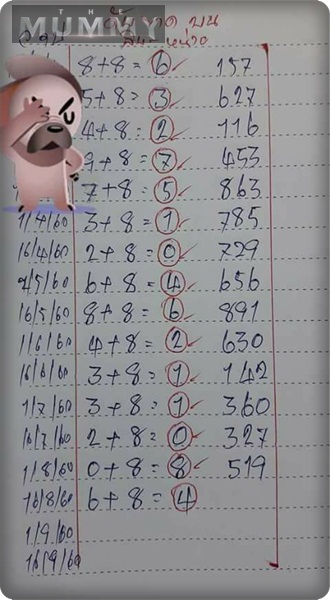 THE
MUMMY
บน
8+8=6 157
5+8=3 627
4+8=2 116
9+8=7 453
7+8=5 863
1/4/60 3+8=1 785
16/4/60 2+8=0 729
2/5/60 6+8=4 656
16/5/60 8+8=6 891
1/6/60 4+8=2 630
16/6/60 3+8=1 142
1/7/60 3+8=1 360
16/7/60 2+8=0 327
1/8/60 0+8=8 519
16/8/60 6+8=4
1/9/60
16/9/60